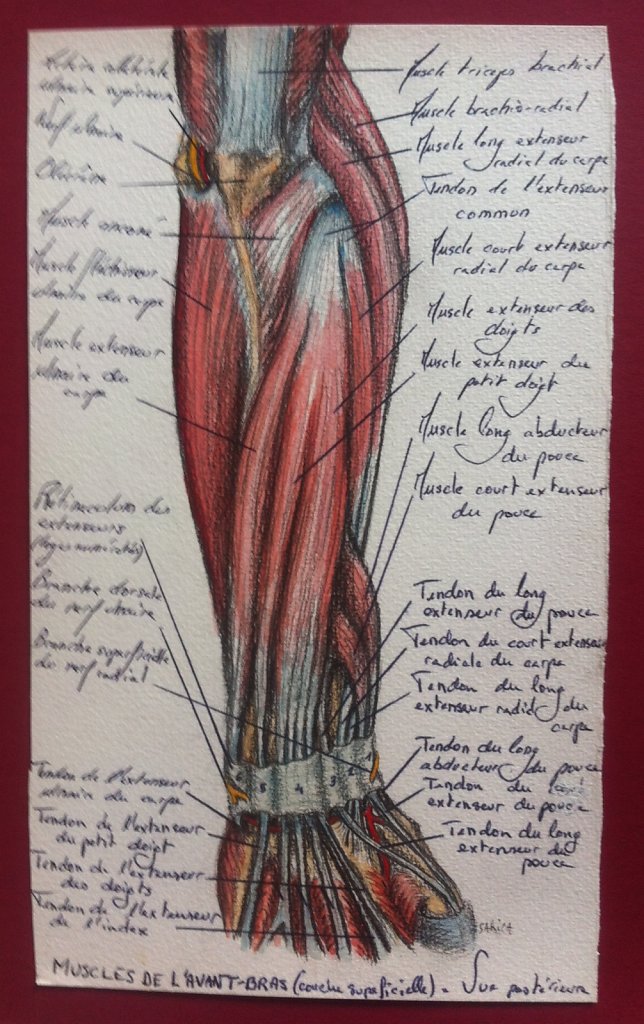 Artère collatérale
ulnaire supérieure
Nerf ulnaire
Olécrâne
Muscle anconé
Muscle fléchisseur
ulnaire du carpe
Muscle extenseur
ulnaire du
carpe
Rétinaculum des
extenseurs
Branche dorsale
du nerf ulnaire
Branche superficielle
du nerf radial
Tendon de l'extenseur
ulnaire du carpe
Tendon de l'extenseur
du petit doigt
Tendon de l'extenseur
des doigts
Tendon de l'extenseur
de l'index
Muscle triceps brachial
Muscle brachio-radial
Muscle long extenseur
radial du carpe
Tendon de l'extenseur
common
Muscle court extenseur
radial du carpe
Muscle extenseur des
doigts
Muscle extenseur du
petit doigt
Muscle long abducteur
du pouce
Muscle court extenseur
du pouce
Tendon du long
extenseur du pouce
Tendon du court extenseur
radiale du carpe
Tendon du long
extenseur radial du
carpe
Tendon du long
abducteur du pouce
Tendon du
extenseur du pouce
Tendon du long
extenseur du
pouce
6 5 4 3 2 1
SARICA
MUSCLES DE L'AVANT-BRAS (couche superficielle). Vue postérieure